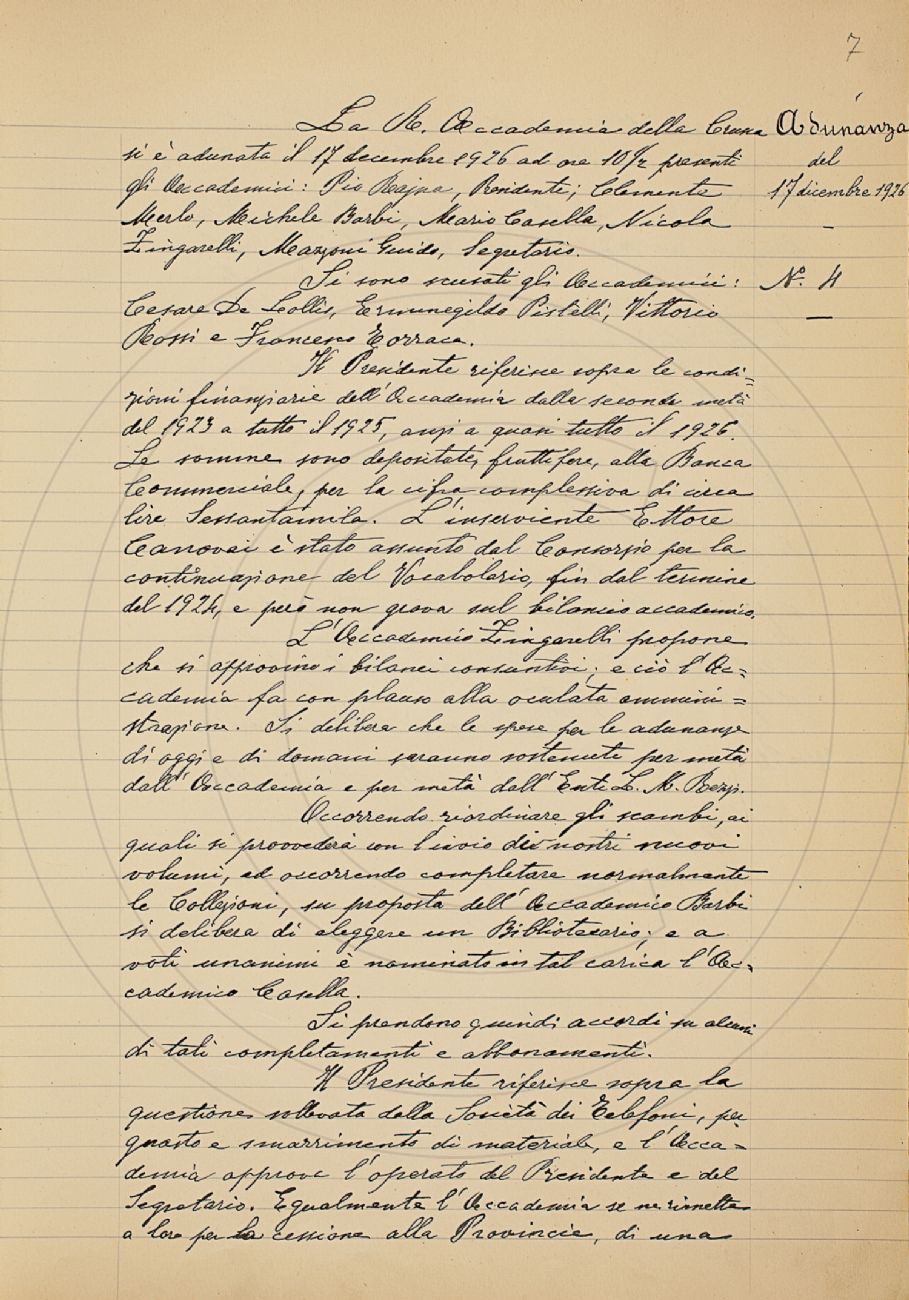 7
La R. Accademia della Crusca
Adunanza
si è adunata il 17 decembre 1926 ad ore 10 1/2 presenti
del
gli Accademici: Pio Rajna, Presidente; Clemente
17 dicembre 1926
Merlo, Michele Barbi, Mario Casella, Nicola
Zingarelli, Mazzoni Guido, Segretario.
Si sono scusati gli Accademici:
N. 4
Cesare De Lollis, Ermenegildo Pistelli, Vittorio
Rossi e Francesco Torraca.
Il Presidente riferisce sopra le condi=
zioni finanziarie dell'Accademia dalla seconda metà
del 1923 a tutto il 1925, anzi a quasi tutto il 1926.
Le somme sono depositate, fruttifere, alla Banca
Commerciale, per la cifra complessiva di circa
lire Sessantamila. L'inserviente Ettore
Canovai è stato assunto dal Consorzio per la
continuazione del Vocabolario, fin dal termine
del 1924, e però non grava sul bilancio accademico.
L'Accademico Zingarelli propone
che si approvino i bilanci consuntivi; e ciò l'Ac=
cademia fa con plauso alla oculata ammini=
strazione. Si delibera che le spese per le adunanze
di oggi e di domani saranno sostenute per metà
dall'Accademia e per metà dall'Ente L. M. Rezzi.
Occorrendo riordinare gli scambi, ai
quali si provvederà con l'invio dei nostri nuovi
volumi, ed occorrendo completare normalmente
le Collezioni, su proposta dell'Accademico Barbi
si delibera di eleggere un Bibliotecario; e a
voti unanimi è nominato in tal carica l'Ac=
cademico Casella.
Si prendono quindi accordi su alcuni
di tali completamenti e abbonamenti.
Il Presidente riferisce sopra la
questione sollevata dalla Società dei Telefoni, per
guasto e smarrimento di materiale, e l'Acca=
demia approva l'operato del Presidente e del
Segretario. Egualmente l'Accademia se ne rimette
a loro per la cessione alla Provincia, di una